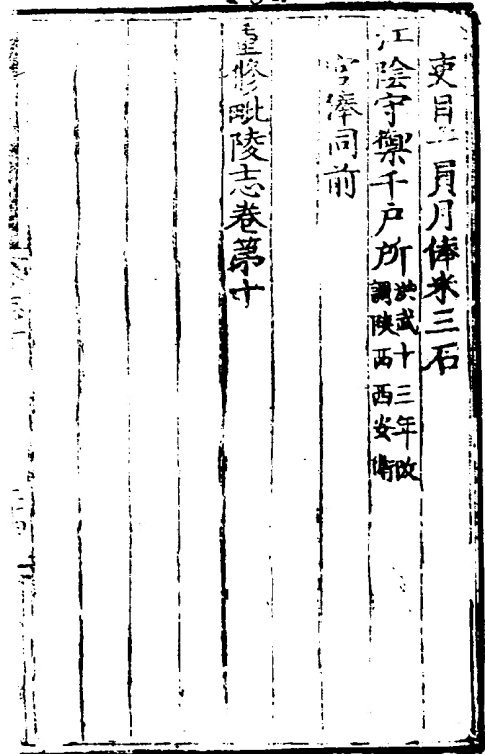 吏目一員月俸米三石
江陰守禦千戶所洪武十三年改
調陝西西安衛
官俸同前
重修毗陵志卷第十